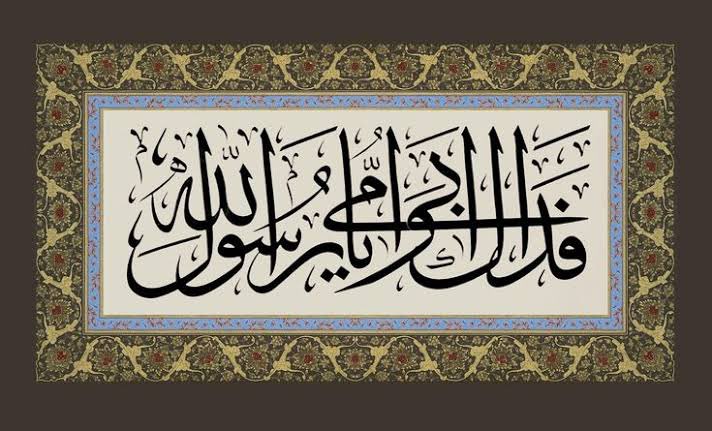 فداك ابي و امي يا رسول الله